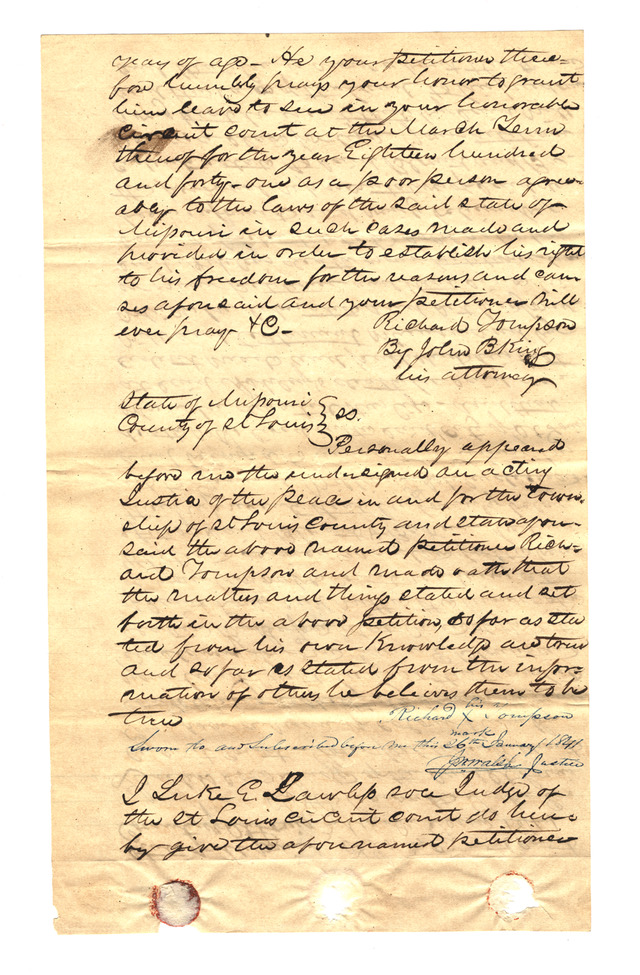 years of age - He your petitioner there-
fore humbly prays your honor to grant
him leave to sue in your honorable
circuit court at the March Term
thereof for the year Eighteen hundred
and forty-one as a poor person agree-
ably to the laws of the said state of
Missouri in such cases made and
provided in order to establish his right
to his freedom for the reasons and cau-
ses aforesaid and your petitioner will
ever pray &C- Richard Tompson
By John B King
his attorney
State of Missouri
County of St Louis } ss.
Personally appeared
before me the undersigned an acting
Justice of the peace in and for the town-
ship of St Louis County and state afore-
said the above named petitioner Rich-
ard Tompson and made oath that
the matters and things stated and set
forth in the above petition, so far as sta-
ted from his own Knowledge are true
and so far as stated from the infor-
mation of others he believes them to be
true
Richard his X mark Tompson
Sworn to and Subscribed before me this 26th January 1841
Walsh Justice
I Luke E. Lawless sole Judge of
the St Louis circuit court do here-
by give the afore named petitioner